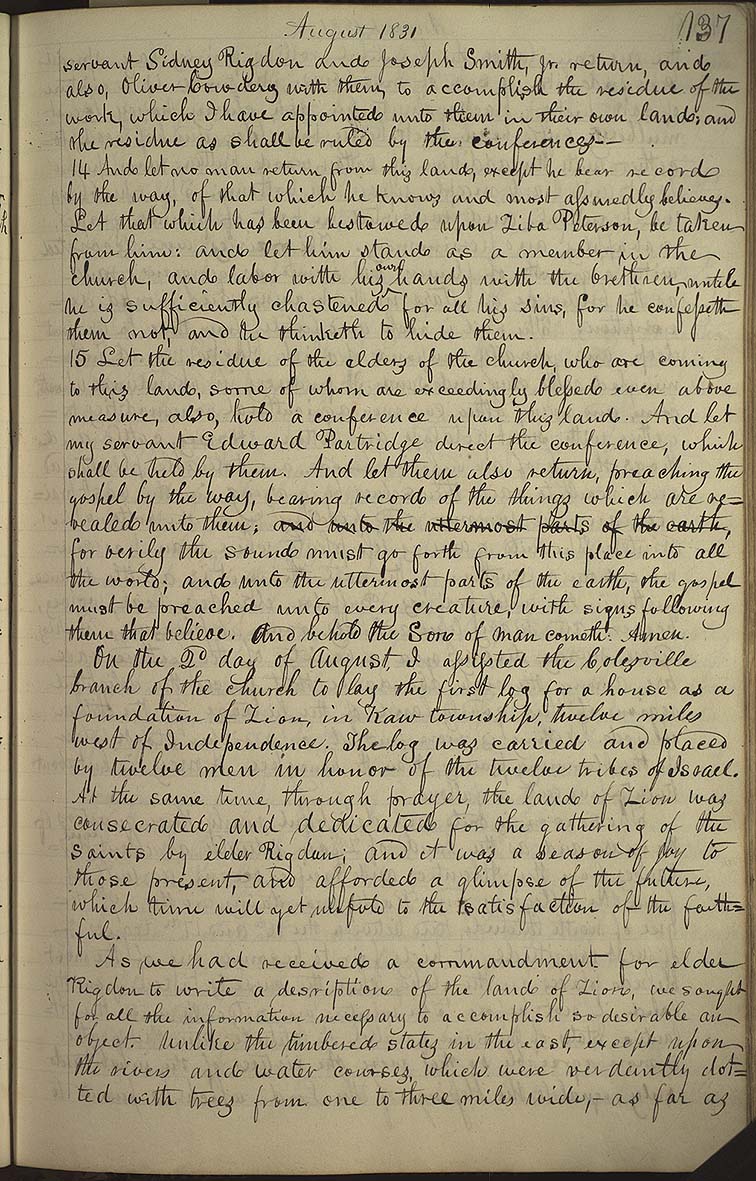 August 1831
137
servant Sidney Rigdon and Joseph Smith, jr. return, and
also, Oliver Cowdery with them, to accomplish the residue of the
work, which I have appointed unto them in their own lands; and
the residue as shall be ruled by the conferences—
14 And let no man return from this land, except he bear record
by the way, of that which he knows and most assuredly believes.
Let that which has been bestowed upon Ziba Peterson, be taken
from him: and let him stand as a member in the
church, and labor with his own hands with the brethren, until
he is sufficiently chastened for all his sins, for he confesseth
them not, and he thinketh to hide them.
15 Let the residue of the elders of the church, who are coming
to this land, some of whom are exceedingly blessed even above
measure, also, hold a conference upon this land. And let
my servant Edward Partridge direct the conference, which
shall be held by them. And let them also return, preaching the
gospel by the way, bearing record of the things which are re=
vealed unto them; and unto the uttermost parts of the earth,
for verily the sound must go forth from this place into all
the world; and unto the uttermost parts of the earth, the gospel
must be preached unto every creature, with signs following
them that believe. And behold the Son of man cometh: Amen.
On the 2d day of August, I assisted the Colesville
branch of the church to lay the first log for a house as a
foundation of Zion, in Kaw township, twelve miles
west of Independence. The log was carried and placed
by twelve men in honor of the twelve tribes of Israel.
At the same time, through prayer, the land of Zion was
consecrated and dedicated for the gathering of the
Saints by elder Rigdon; and it was a season of joy to
those present, and afforded a glimpse of the future,
which time will yet unfold to the satisfaction of the faith=
ful.
As we had received a commandment for elder
Rigdon to write a desription of the land of Zion, we sought
for all the information necessary to accomplish so desirable an
object. Unlike the timbered states in the east, except upon
the rivers and water courses, which were verdantly dot=
ted with trees from one to three miles wide,— as far as